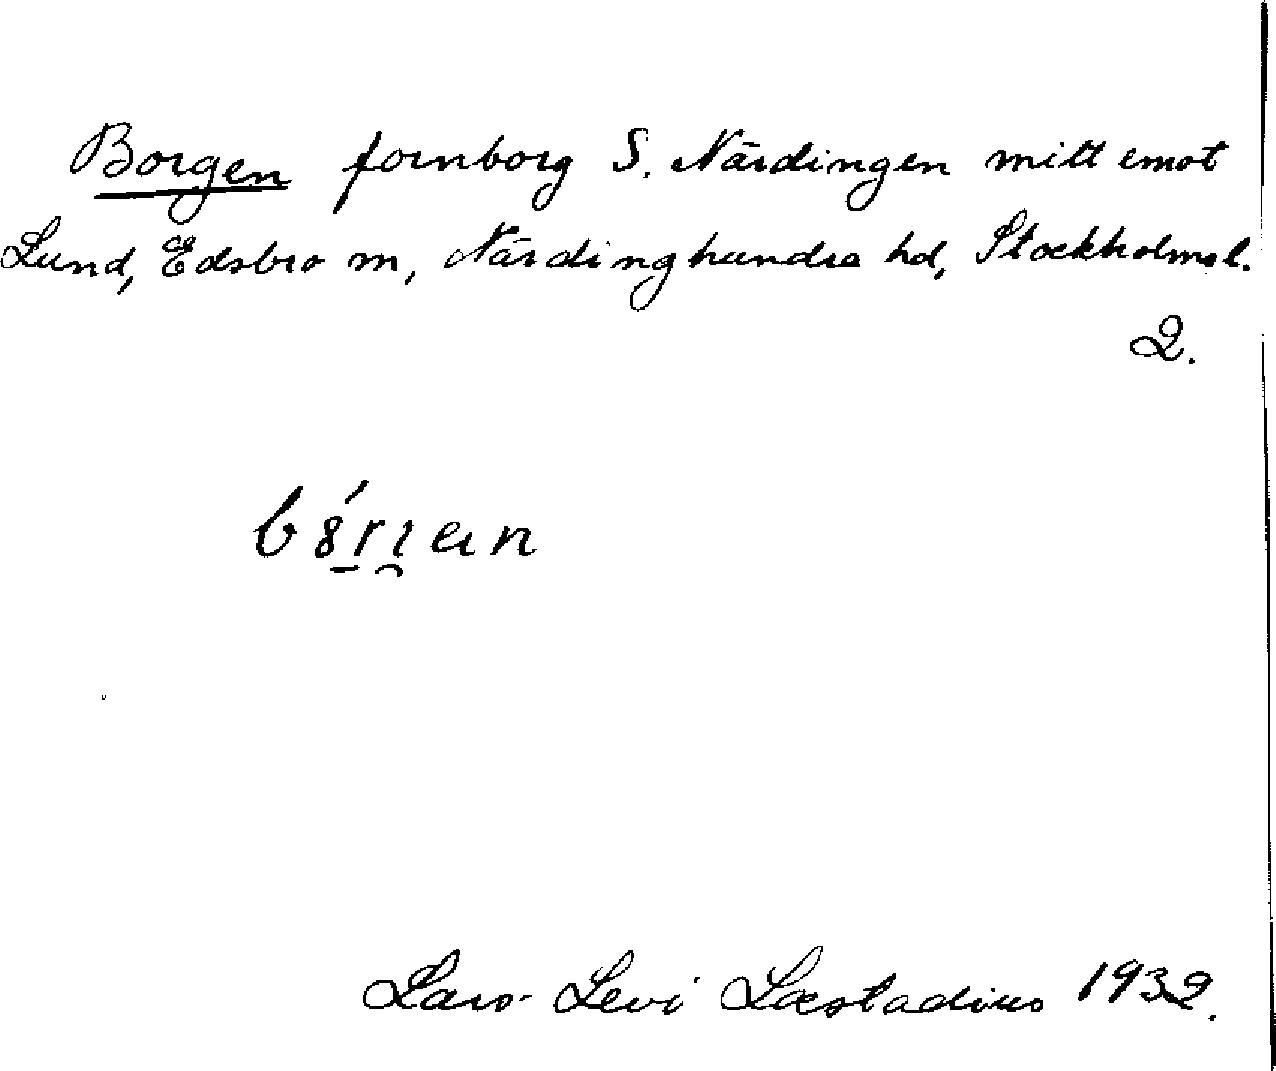 Borgen fornborg S. Närdingen mitt emot
Lund, Edsbro sn, Närdinghundra hd, Stockholmsl.
2.
Lars-Levi Læstadius 1932.